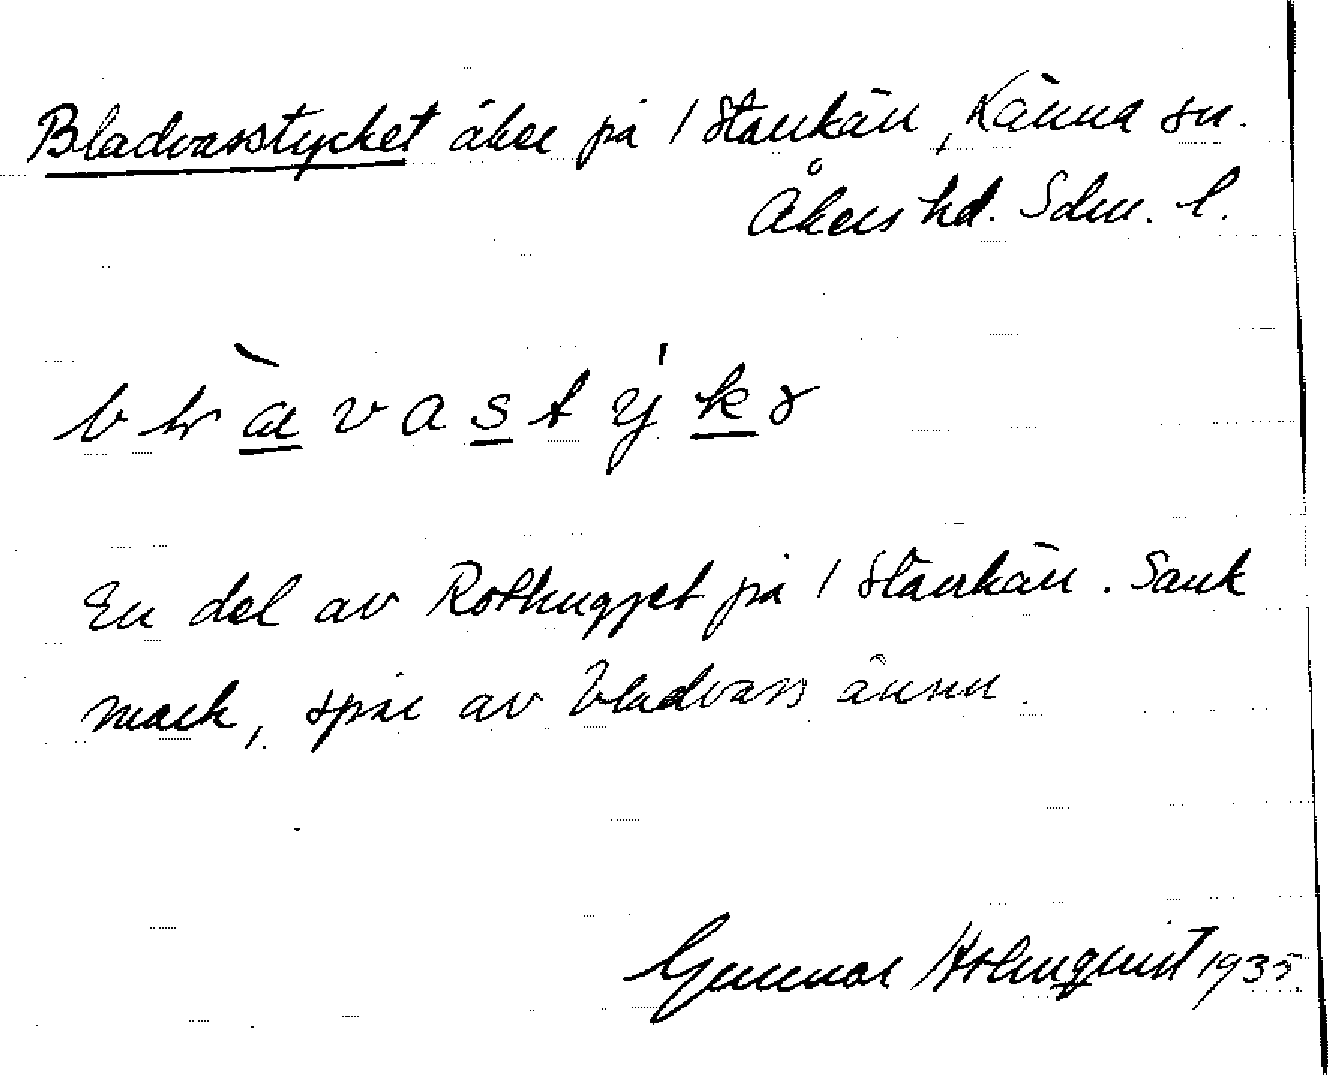 Bladvasstycket åker på 1 Stenkärr, Länna sn.
Åkers hd. Sdm. l.
En del av Rothugget på 1 Stenkärr. Sank
mark, spår av bladvass ännu.
Gunnar Holmquist 1935.